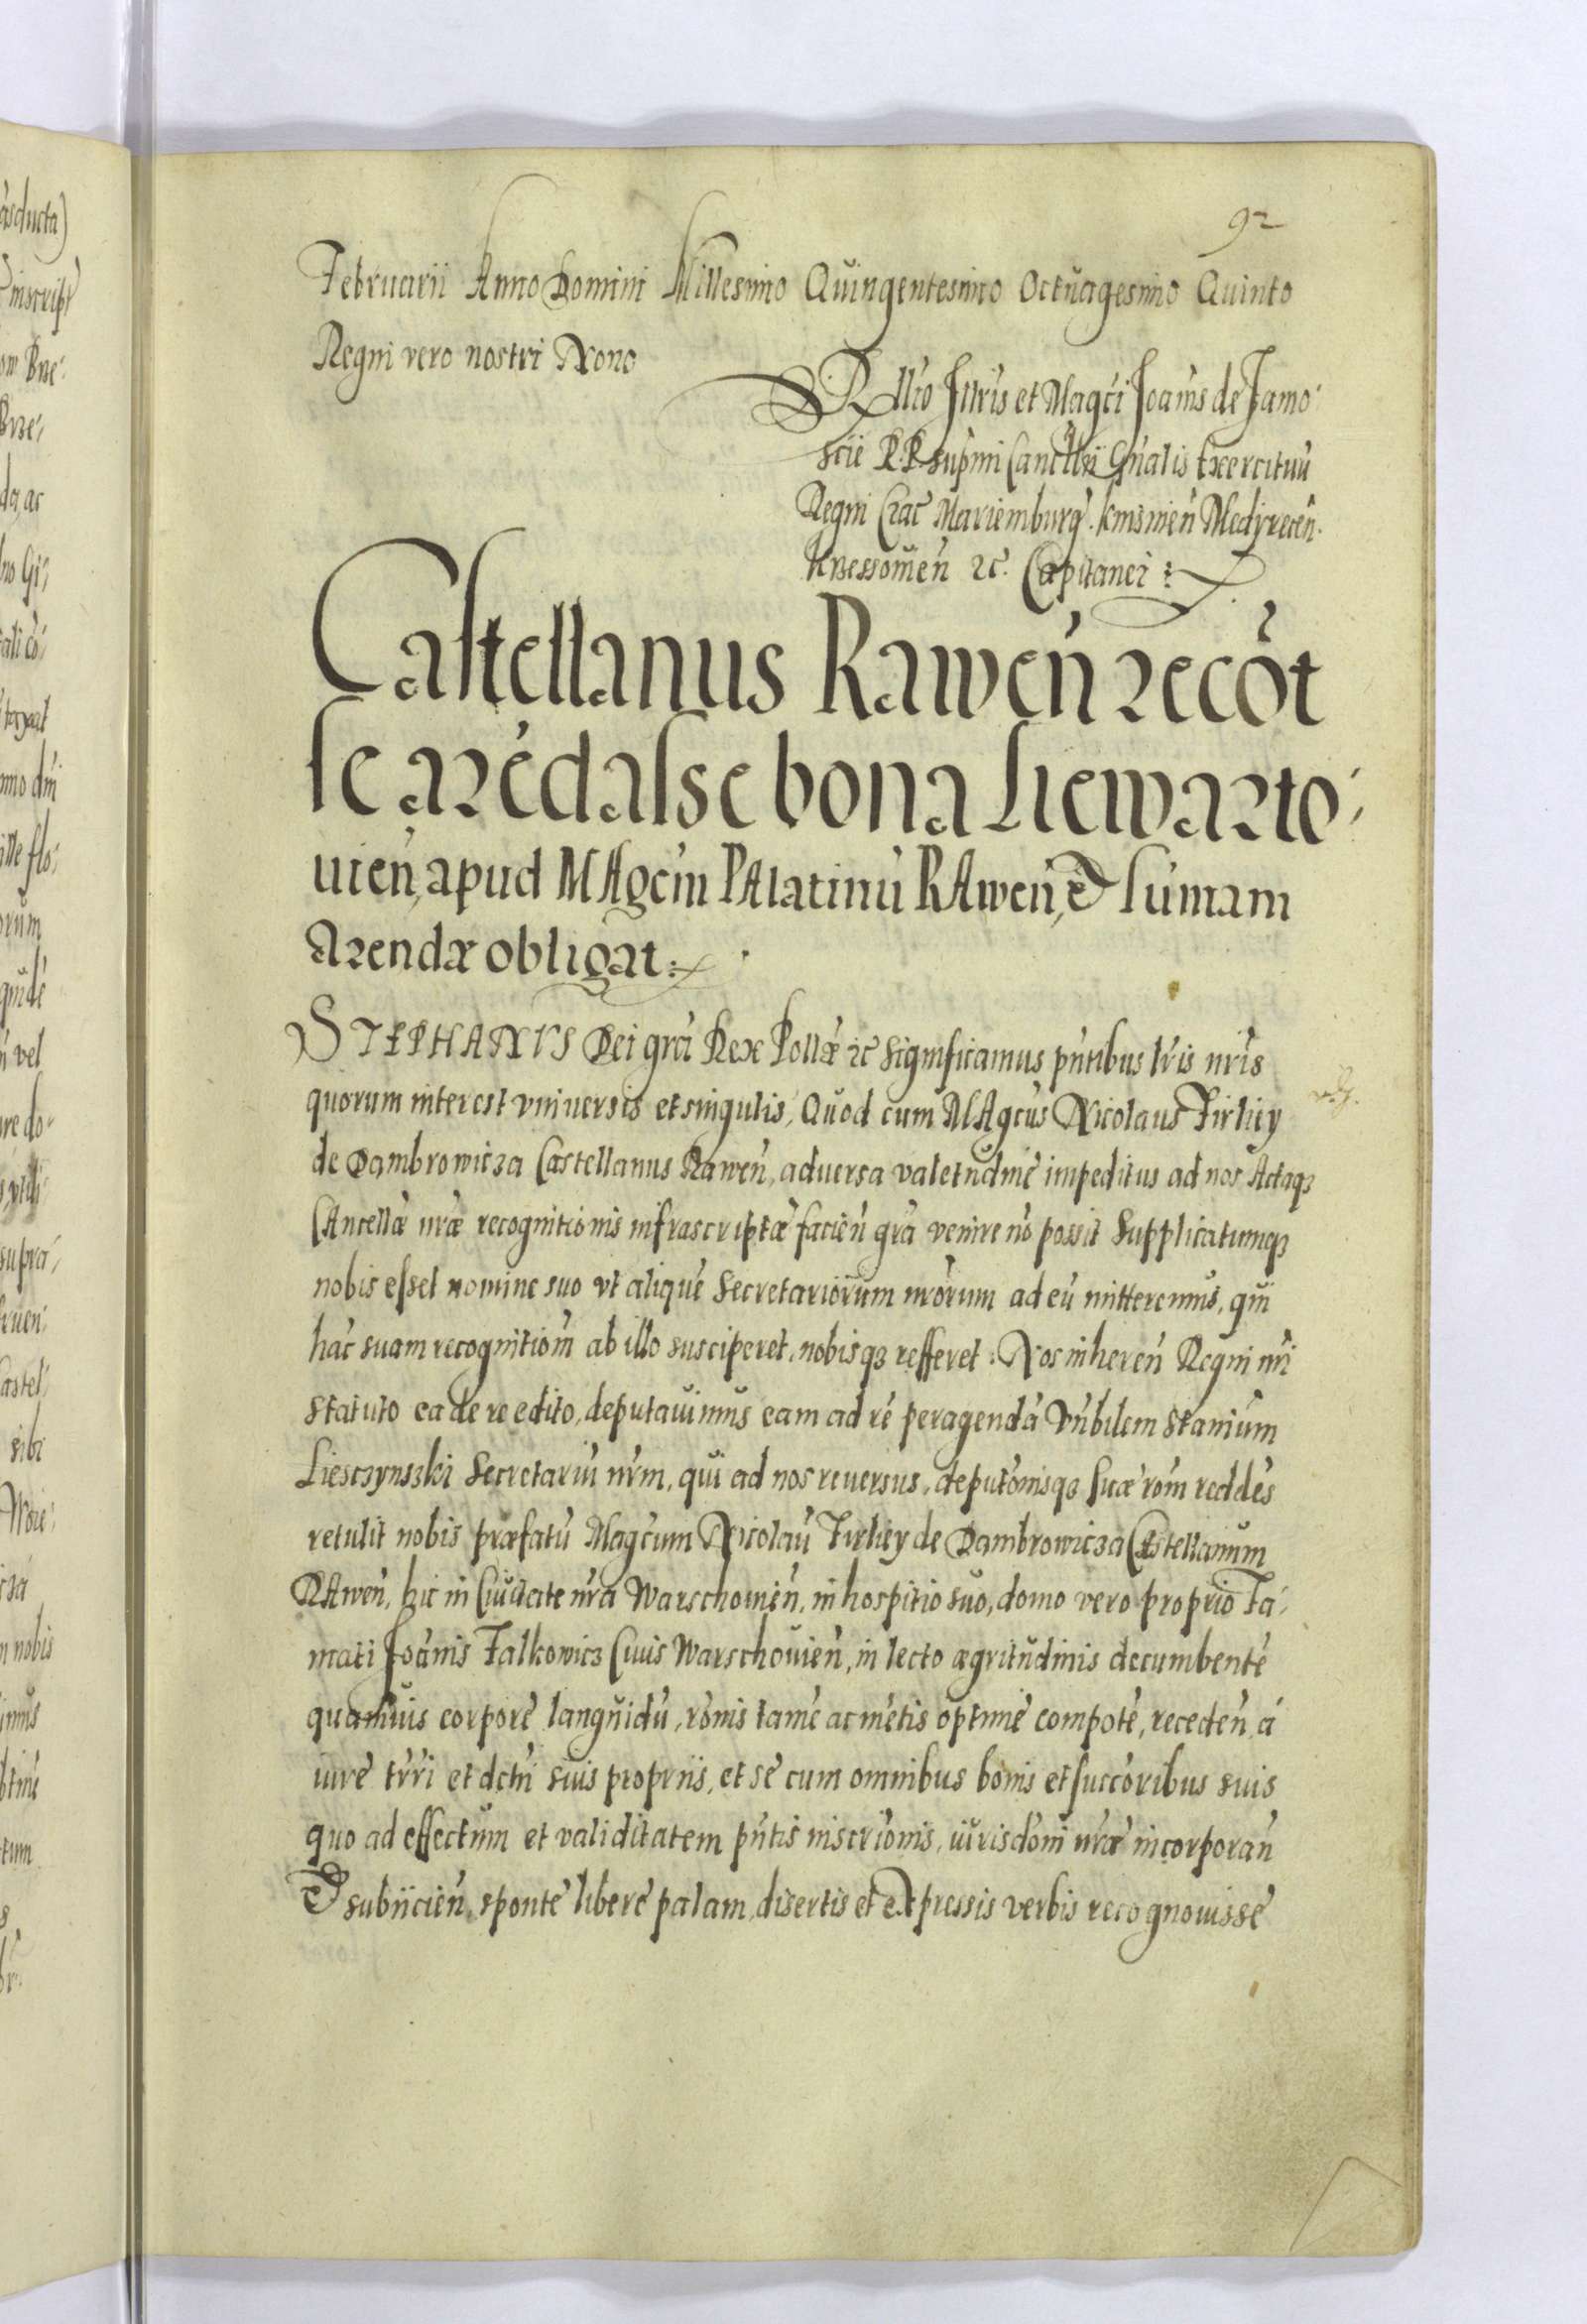 92
Februarii Anno Domini Millesimo Quingentesimo Octuagesimo Quinto
Regni vero nostri Nono
Rllio Illris et Magci Joanis de Zamo
scii R. P. supmi Cancllri Gnalis Exercituu
Regni Crac Mariemburg. Knisinen Medzrecen.
Knessouien zc. Capitanei
Castellanus Rawen recot
se aredasse bona Liewarto:
uien, apud MAgcm PAlatinu RAwen, et sumam
Arendæ obligat
STEPHANVS Dei gra Rex Pollæ zc significamus pntibus lris nris
quorum interest vniuersis et singulis, Quod cum MAgcus Nicolaus Firliey
de Dambrowicza Castellanus Rawen, aduersa valetudine impeditus ad nos Actaq3
CAncellæ nræ recognitionis infrascriptæ facien gra venire no possit Supplicatumq3
nobis esset nomine suo vt alique Secretariorum nrorum ad eu mitteremus, qui
hac suam recognitiom ab illo susciperet, nobisq3 refferet. Nos inheren Regni nri
statuto ea de re edito, deputauimus eam ad re peragenda Vnbilem Stanium
Liesczynszki Secretariu nrm, qui ad nos reuersus, deputonisq3 suæ rom reddes
retulit nobis præfatu Magcum Nicolau Firliey de Dambrowicza CAstellanum
RAwen, hic in Ciuitate nra Warschouien, in hospitio suo, domo vero proprio Fa:
mati Joanis Falkowicz Ciuis Warschouien, in lecto ægritudinis decumbente
quamuis corpore languidu, ronis tame ac metis optime compote, receden, a
iure trri et dctri suis propriis, et se cum omnibus bonis et succoribus suis
quo ad effectum et validitatem pntis inscrionis, iurisdoni nræ incorporan
Et subiicien, sponte libere palam, disertis et expressis verbis recognouisse